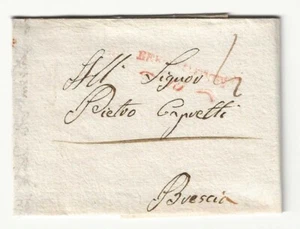 All Signor
Pietro Capretti
Brescia